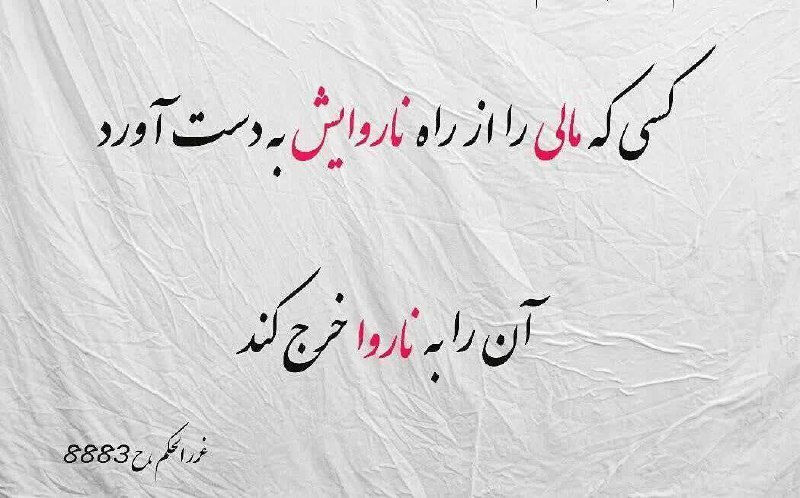 کسی که مالی را از راه ناروایش به دست آورد
آن را به ناروا خرج کند
غررالحکم ح 8883